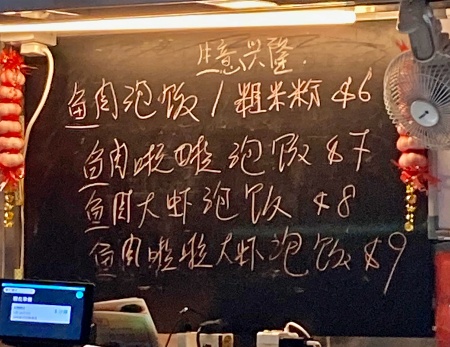 生意兴隆
鱼肉泡饭/粗米粉 $6
鱼肉啦啦泡饭 $7
鱼肉大虾泡饭 $8
鱼肉啦啦大虾泡饭 $9